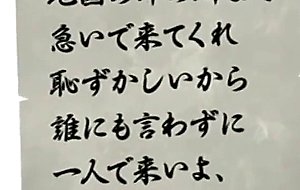 急いで来てくれ
恥ずかしいから
誰にも言わずに
一人で来いよ、